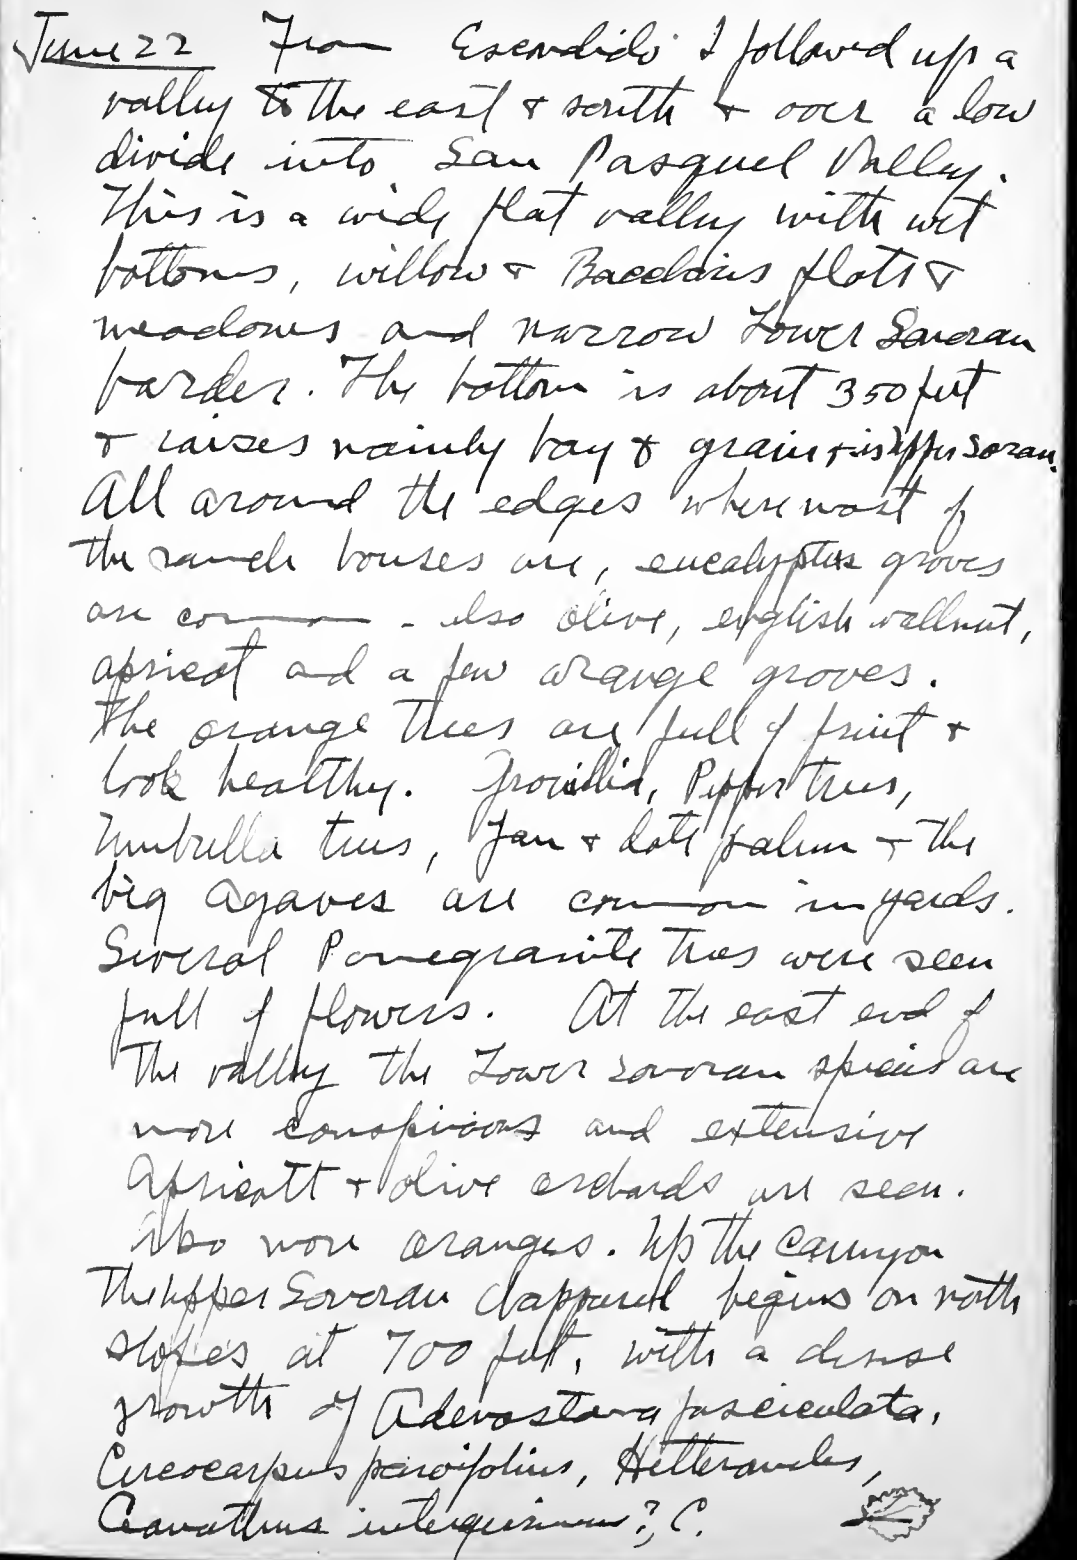 June 22 From Escondido I followed up a
valley to the east & south & over a low
divide into San Pasquel Valley.
This is a wide flat valley with wet
bottoms, willow & Baccharis flats &
meadows and narrow Lower Sonoran
border. The bottom is about 350 feet
& raises mainly hay & grain & is Upper Sonoran.
All around the edges where most of
the ranch houses are, eucalyptus groves
are common - also olive, english wallnut,
apricot and a few orange groves.
The orange trees are full of fruit &
look healthy. Grevillia, Pepper trees,
Umbrella trees, fan & date palm & the
big agaves are common in yards.
Several Pomegranite trees were seen
full of flowers. At the east end of
the valley the Lower Sonoran species are
more conspicious and extensive
apricott & olive orchards are seen.
Also more oranges. Up the Cannyon
the Upper Sonoran chapparel begins on north
slopes at 700 feet, with a dense
growth of Adenostoma fasciculata,
Cercocarpus parvifolius, Hetteromeles,
Ceanothus intergerimus?, C.